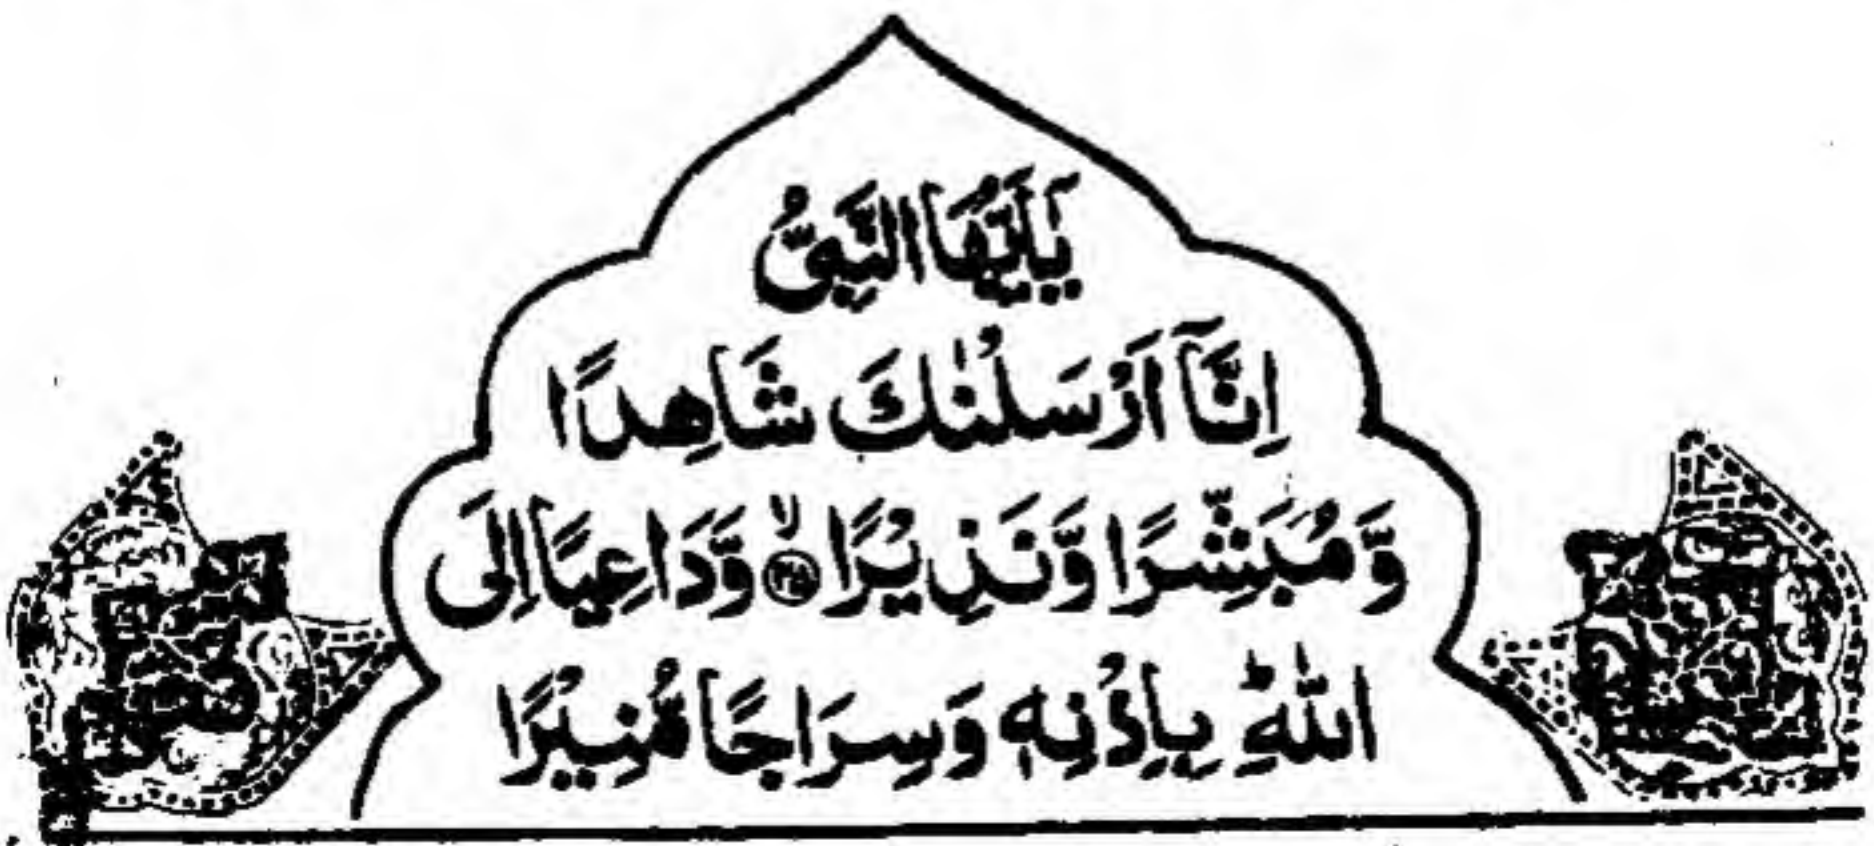 يٰٓاَيُّهَا النَّبِىُّ
اِنَّآ اَرْسَلْنٰكَ شَاهِدًا
وَّمُبَشِّرًا وَّنَذِيْرًا ۙ﴿۴۵﴾ وَّدَاعِيًا اِلَى
اللّٰهِ بِاِذْنِهٖ وَسِرَاجًا مُّنِيْرًا